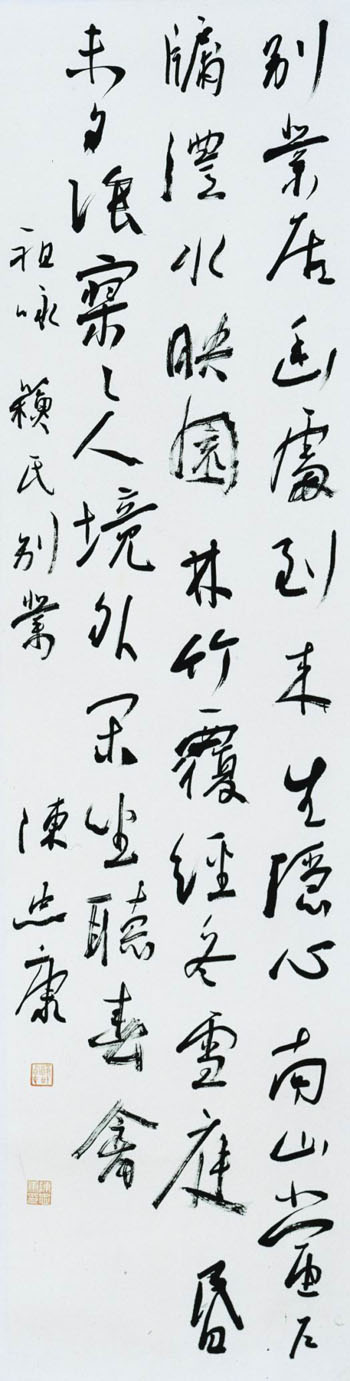 别業居幽處到来生隱心南山當户
牖澧水映園林竹覆經冬雪庭昏
未夕陰寥〻人境外閑坐聽春禽
祖咏 蘇氏别業 陳忠康